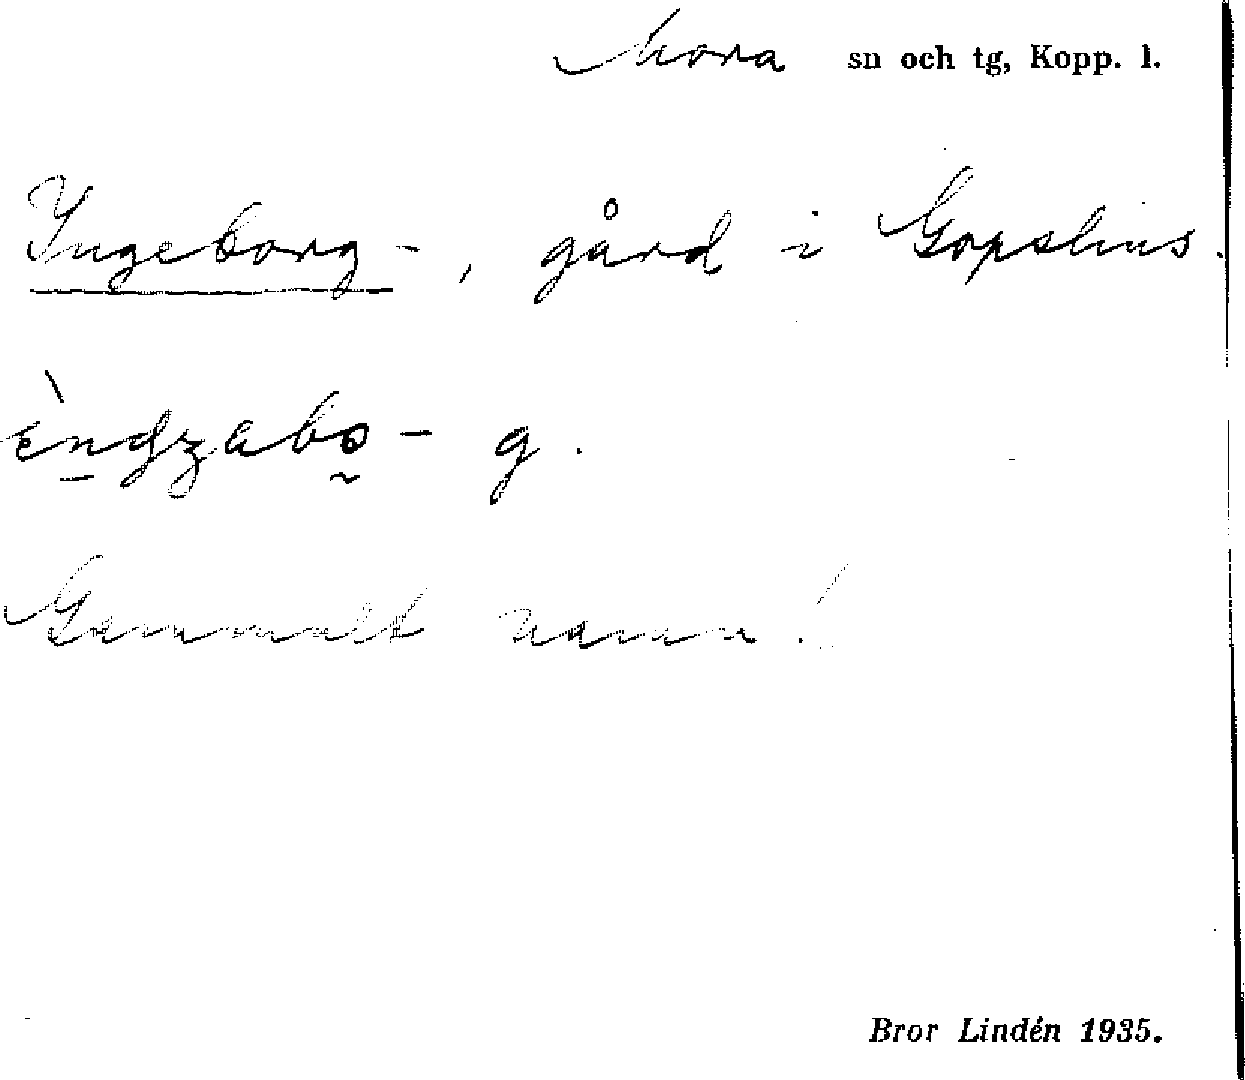 Mora sn och tg, Kopp. l.
Ingeborg-, gård i Gopshus.
èngzabo- g.
Gammalt namn!
Bror Lindén 1935.